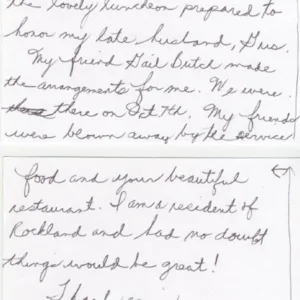 the lovely luncheon prepared to
honor my late husband, Gus.
My friend Gail Dutch made
the arrangements for me. We were
there on Oct 7th. My friends
were blown away by the service
food and your beautiful
restaurant. I am a resident of
Rockland and had no doubt
things would be great!